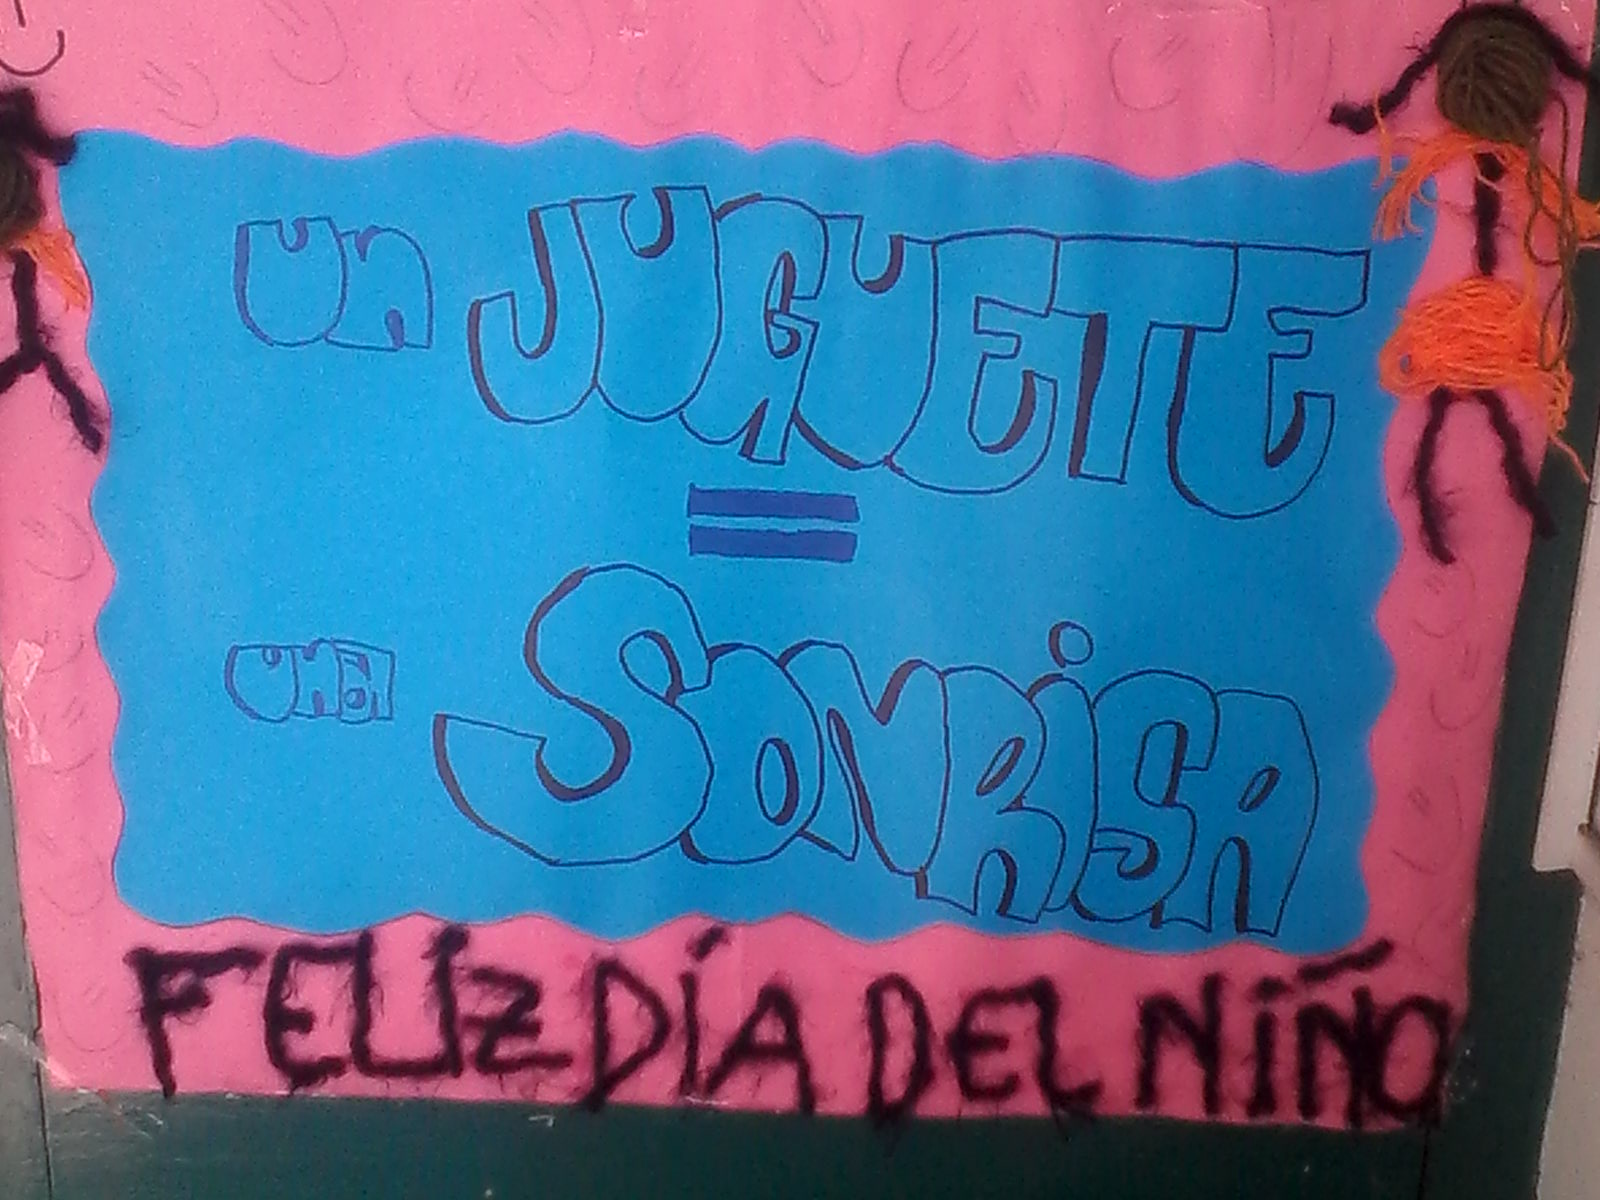 un JUGUETE
=
una SONRiSA
FELIZ DÍA DEL NiÑO